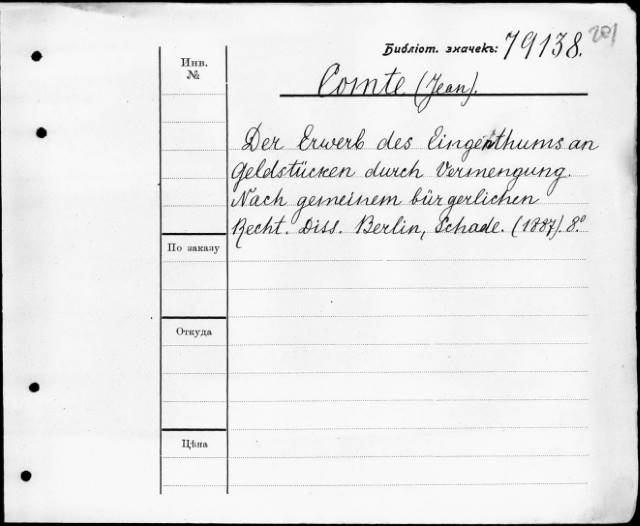 201
Библіот. значекъ: 79138.
Инв.
№
Comte (Jean).
Der Erwerb des Eingenthums an
Geldstücken durch Vermengung.
Nach gemeinem bürgerlichen
Recht. Diss. Berlin, Schade. (1887). 8.º
По заказу
Откуда
Цѣна